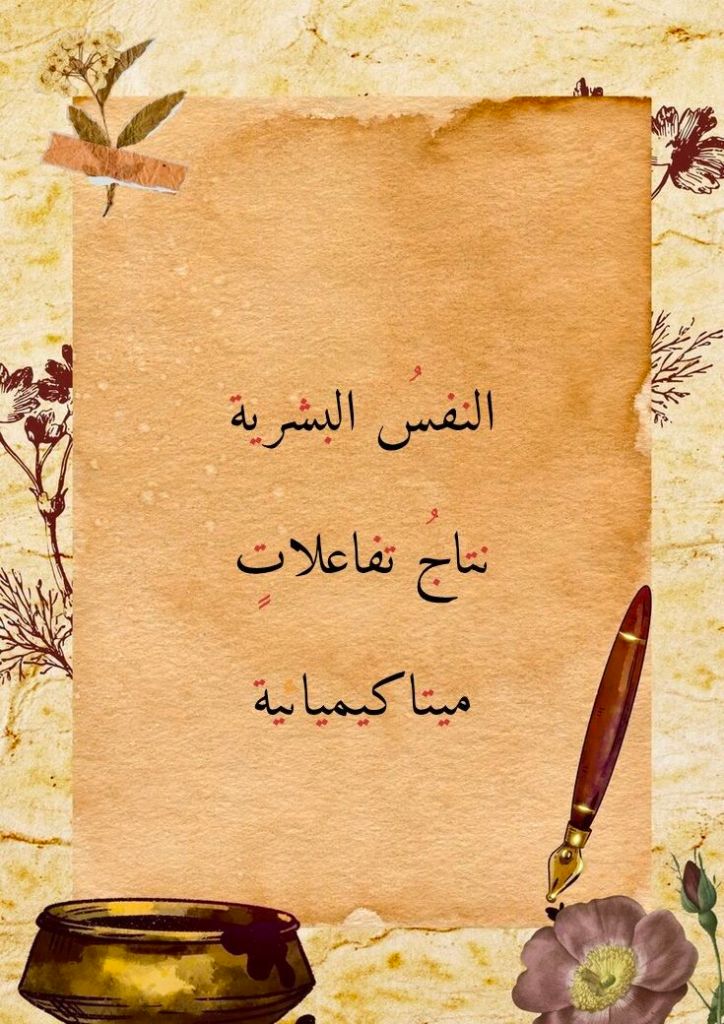 النفسُ البشرية
نتاجُ تفاعلاتٍ
ميتاكيميائية